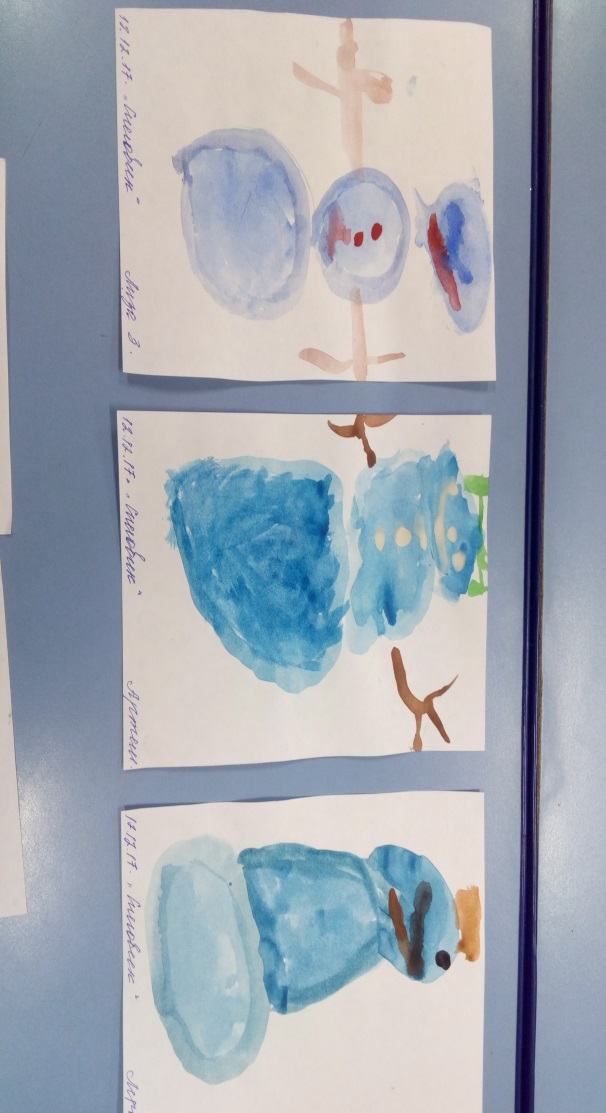 12.12.17. „Снеговик" Лиза З.
12.12.17. „Снеговик" Артем.
12.12.17. „Снеговик"